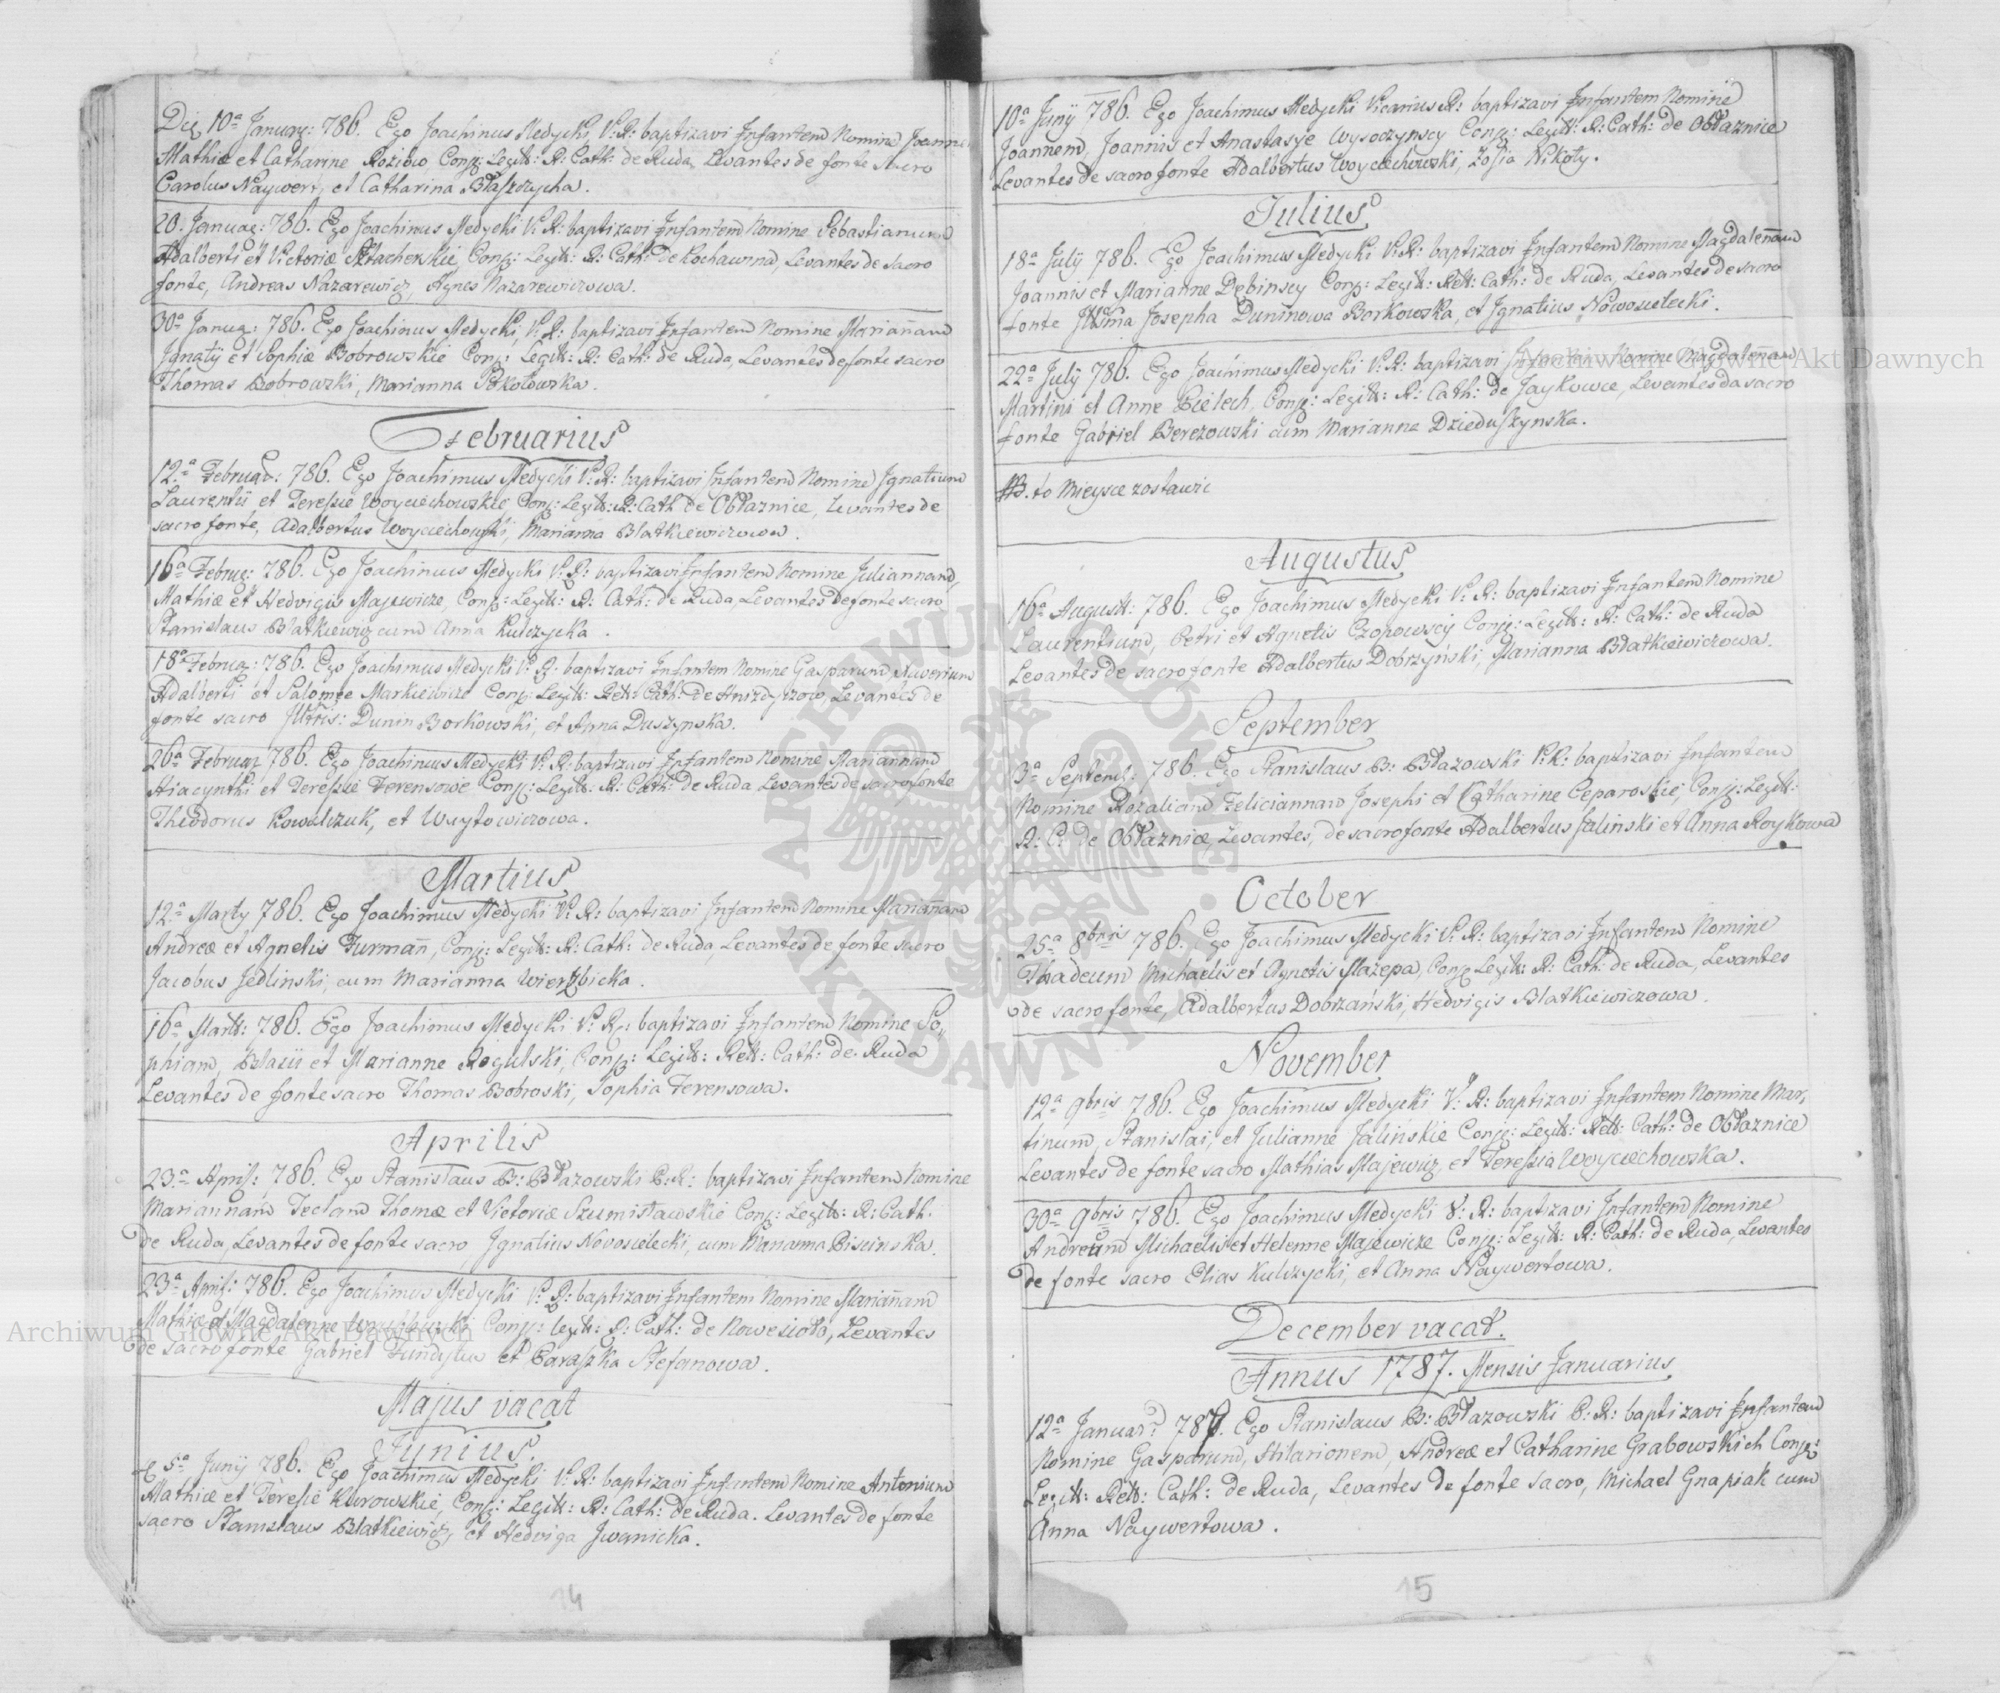 Die 10a January: 786. Ego Joachimus Medycki V: R: baptizavi Infantem Nomine Joannem
Mathiæ et Catharine Roziew Conjg: Legitt: R: Cath: de Ruda, Levantes de fonte sacro
Carolus Naywert, et Catharina Błaszczycha.
20. Januar: 786. Ego Joachimus Medycki V: R: baptizavi Infantem Nomine Sebastianum
Adalberti et Victoriæ Conjg: Legitt: R: Cath: de Kochawina, Levantes de sacro
fonte, Andreas Nazarewicz, Agnes Nazarewiczowa.
30a Januar: 786. Ego Joachimus Medycki, V: R: baptizavi Infantem Nomine Mariannam
Ignatÿ et Sophiæ Bobrowskie Conjg: Legitt: R: Cath: de Ruda, Levantes de fonte sacro
Thomas Bobrowski, Marianna Sokołowska.
Februarius
12a Februar: 786. Ego Joachimus Medycki V: R: baptizavi Infantem Nomine Ignatium
Laurentii et Teressie Woyciechowskie, Conjg: Legitt: R: Cath de Obłaznice, Levantes de
sacro fonte, Adalbertus Woyciechowski, Marianna Blatkiewiczowa.
16a Februar: 786. Ego Joachimus Medycki V: R: baptizavi Infantem Nomine Juliannam,
Mathiæ et Hedvigis Majewicze, Conjg: Legitt: R: Cath: de Ruda, Levantes de fonte sacro
Stanislaus Blatkiewicz cum Anna Kulczycka.
18a Februar: 786. Ego Joachimus Medycki V: R: baptizavi Infantem Nomine Gasparum Xaverium
Adalberti et Salomee Markiewicze Conjg: Legitt: Rtt: Cath: de Hnizdyczow, Levantes de
fonte sacro Illtris: Dunin Borkowski, et Anna Duszynska.
26a Februar 786. Ego Joachimus Medycki V: R: baptizavi Infantem Nomine Mariannam
Hiacynthi et Teressie Ferensowe Conjg: Legitt: R: Cath: de Ruda Levantes de sacro fonte
Theodorus Kowalczuk, et Woytowiczowa.
Martius
12a Marty 786. Ego Joachimus Medycki V: R: baptizavi Infantem Nomine Mariannam
Andreæ et Agnetis Furmañ, Conjg: Legitt: R: Cath: de Ruda, Levantes de fonte sacro
Jacobus Jedlinski, cum Marianna Wierzbicka.
16a Martt: 786. Ego Joachimus Medycki V: R: baptizavi Infantem Nomine So,,
phiam, Blasii et Marianne Rogulski, Conjg: Legitt: Rtt: Cath: de Ruda
Levantes de fonte sacro Thomas Bobroski, Sophia Ferensowa.
Aprilis
23a April: 786. Ego Stanislaus B: Błazowski C: R: baptizavi Infantem Nomine
Mariannam Teclam Thomæ et Victoriæ Szumisławskie Conjg: Legitt: R: Cath.
de Ruda, Levantes de fonte sacro, Ignatius Novosielecki, cum Marianna
23a April: 786. Ego Joachimus Medycki V: R: baptizavi Infantem Nomine Mariañam
Mathiæ et Magdalenne Conjg: legitt: R: Cath: de Nowesioło, Levantes
de sacro fonte Gabriel Fundytus et Paraszka Stefanowa.
Majus vacat
Junius.
5a Junij 786. Ego Joachimus Medycki V: R: baptizavi Infantem Nomine Antonium
Mathiæ et Teresie Kurowskie, Conjg: Legitt: R: Cath: de Ruda. Levantes de fonte
sacro Stanislaus Blatkiewicz, et Hedviga Iwanicka.
14
10a Junÿ 786. Ego Joachimus Medycki Vicarius R: baptizavi Infantem Nomine
Joannem, Joannis et Anastasye Wysoczynscy Conjg: Legitt: R: Cath: de Obłaznice
Levantes de sacro fonte Adalbertus Woyciechowski, Zofia Nikoły.
Julius
18a Julÿ 786. Ego Joachimus Medycki V: R: baptizavi Infantem Nomine Magdalenam
Joannis et Marianne Dębinscy Conjg: Legitt: Rtt: Cath: de Ruda, Levantes de sacro
fonte Illma Josepha Duninowa Borkowska, et Ignatius Nowosielecki.
22a Julÿ 786. Ego Joachimus Medycki V: R: baptizavi Infantem Nomine Magdalenam
Martini et Anne Bielech, Conjg: Legitt: R: Cath: de Jaykowce, Levantes da sacro
fonte Gabriel Berezowski cum Marianna Dzieduszynska.
NB. to Mieysce zostawic
Augustus
16a Augustt: 786. Ego Joachimus Medycki V: R: baptizavi Infantem Nomine
Laurentium, Petri et Agnetis Czopowscy Conjg: Legitt: R: Cath: de Ruda
Levantes de sacro fonte Adalbertus Dobrzyński, Marianna Błatkiewiczowa.
September
3a Septemb: 786. Ego Stanislaus B: Błazowski V: R: baptizavi Infantem
Nomine Rozaliam Feliciannam Josephi et Catharine Ceparoskie, Conjg: Legitt:
R: C: de Obłazniæ, Levantes, de sacro fonte Adalbertus Jalinski et Anna Roykowa
October
25a 8bris 786. Ego Joachimus Medycki V: R: baptizavi Infantem Nomine
Thadeum Michaelis et Agnetis Mazepa, Conjg Legitt: R: Cath: de Ruda, Levantes
de sacro fonte, Adalbertus Dobrzański, Hedvigis Blatkiewiczowa.
November
12a 9bris 786. Ego Joachimus Medycki V: R: baptizavi Infantem Nomine Mar,,
tinum, Stanislai, et Julianne Jalińskie Conjg: Legitt: Rtt: Cath: de Obłaznice
Levantes de fonte sacro Mathias Majewicz et Teressia Woyciechowska.
30a 9bris 786. Ego Joachimus Medycki V: R: baptizavi Infantem Nomine
Andream Michaelis et Helenne Majewicze Conjg: Legitt: R: Cath: de Ruda, Levantes
de fonte sacro Elias Kulczycki, et Anna Naywertowa.
December vacat.
Annus 1787. Mensis Januarius
12a Januar: 787. Ego Stanislaus B: Błazowski C: R: baptizavi Infantem
Nomine Gasparum, Hilarionem, Andreæ et Catharine Grabowskich Conjg:
Legitt: Rtt: Cath: de Ruda, Levantes de fonte sacro, Michael Gnapiak cum
Anna Naywertowa.
15
Archiwum Główne Akt Dawnych
Archiwum Główne Akt Dawnych
ARCHIWUM GŁÓWNE AKT DAWNYCH